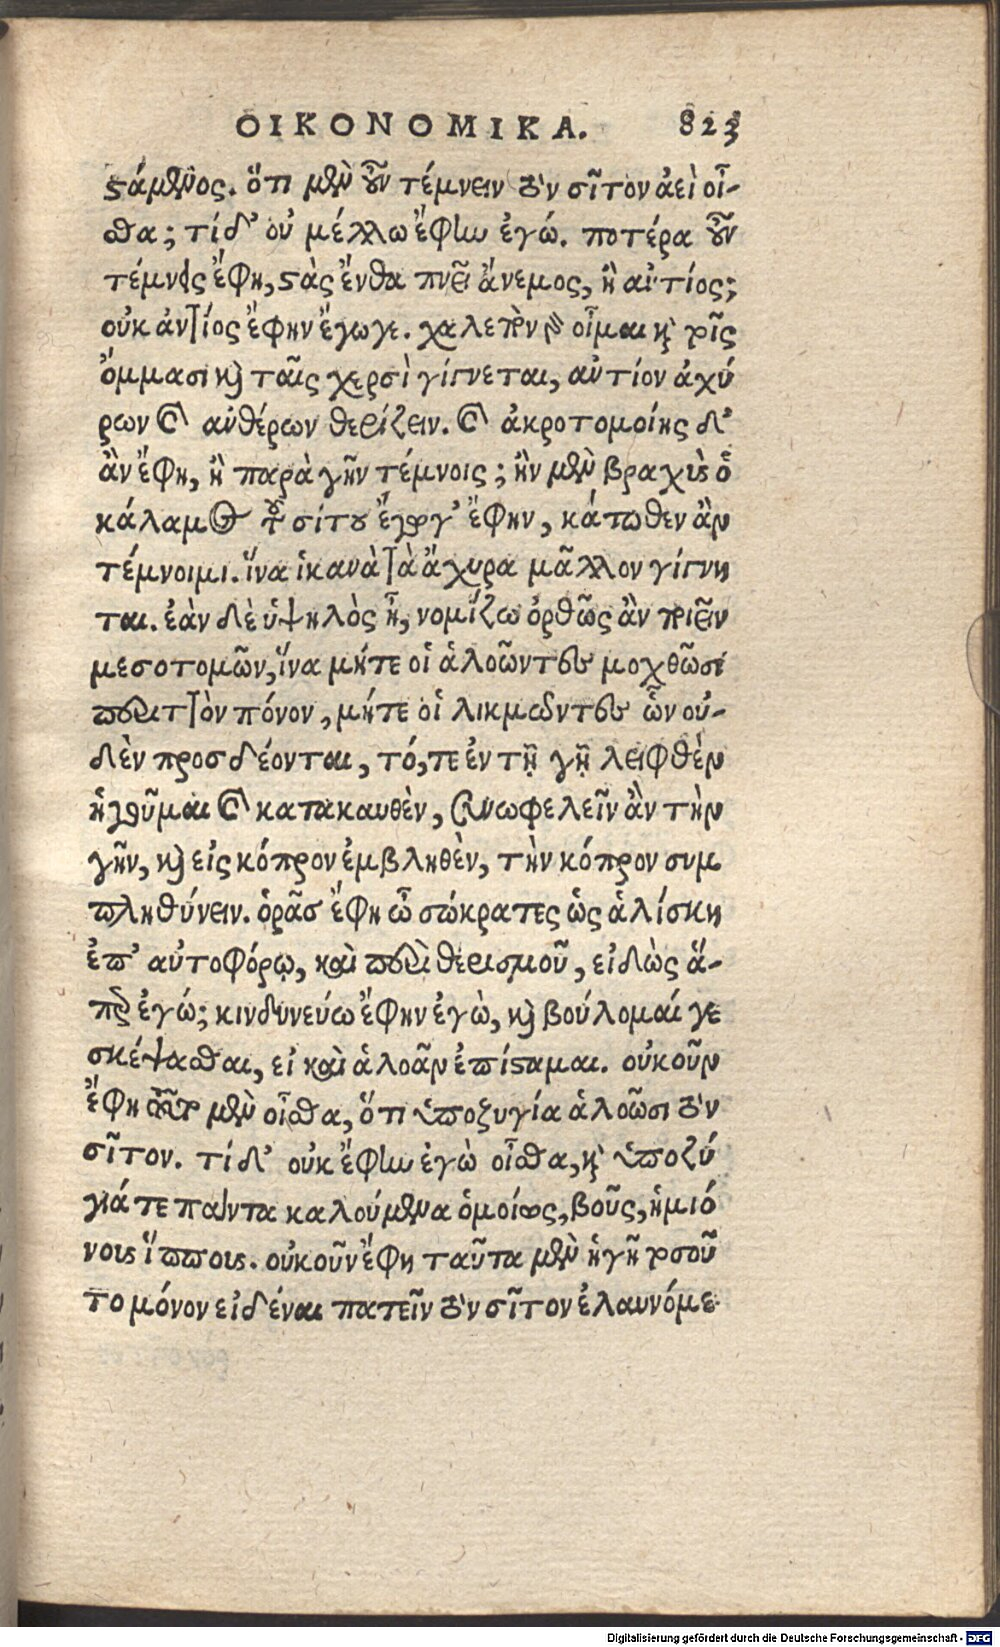 ΟΙΚΟΝΟΜΙΚΑ. 823
ϛάμενος. ὅτι μὲν οὖν τέμνειν τὸν σῖτον ἀεὶ οἶ-
σθα; τί δ' οὐ μέλλω ἔφην ἐγώ. ποτέρα οὖν
τέμνεις ἔφη, ϛὰς ἔνθα πνεῖ ἄνεμος, ἢ ἀντίος;
οὐκ ἀντίος ἔφην ἔγωγε. χαλεπὸν γὰρ οἶμαι καὶ τοῖς
ὄμμασι καὶ ταῖς χερσὶ γίγνεται, ἀντίον ἀχύ
ρων καὶ ἀθέρων θερίζειν. καὶ ἀκροτομοίης δ'
ἂν ἔφη, ἢ παρὰ γῆν τέμνοις; ἢν μὲν βραχὺς ὁ
κάλαμος τοῦ σίτου ἔγωγ' ἔφην, κάτωθεν ἂν
τέμνοιμι. ἵνα ἱκανὰ τὰ ἄχυρα μᾶλλον γίγνη
ται. ἐὰν δὲ ὑψηλὸς ᾖ, νομίζω ὀρθῶς ἂν ποιεῖν
μεσοτομῶν, ἵνα μήτε οἱ ἁλοῶντες μοχθῶσι
περιττὸν πόνον, μήτε οἱ λικμῶντες ὧν οὐ-
δὲν προσδέονται, τό, τε ἐν τῇ γῇ λειφθὲν
ἡγοῦμαι καὶ κατακαυθὲν, συνωφελεῖν ἂν τὴν
γῆν, καὶ εἰς κόπρον ἐμβληθὲν, τὴν κόπρον συμ
πληθύνειν. ὁρᾷσ ἔφη ὦ σώκρατες ὡς ἁλίσκῃ
ἐπ' αὐτοφόρῳ, καὶ περὶ θερισμοῦ, εἰδὼς ἅ-
περ ἐγώ; κινδυνεύω ἔφην ἐγὼ, καὶ βούλομαί γε
σκέψασθαι, εἰ καὶ ἁλοᾶν ἐπίϛαμαι. οὐκοῦν
ἔφη τοῦτο μὲν οἶσθα, ὅτι ὑποζυγία ἁλοῶσι τὸν
σῖτον. τί δ' οὐκ ἔφην ἐγὼ οἶσθα, καὶ ὑποζύ
γιά τε πάντα καλούμενα ὁμοίως, βοῦς, ἡμιό
νους ἵππους. οὐκοῦν ἔφη ταῦτα μὲν ἡγῇ τοσοῦ
το μόνον εἰδέναι πατεῖν τὸν σῖτον ἐλαυνόμε
Digitalisierung gefördert durch die Deutsche Forschungsgemeinschaft - DFG